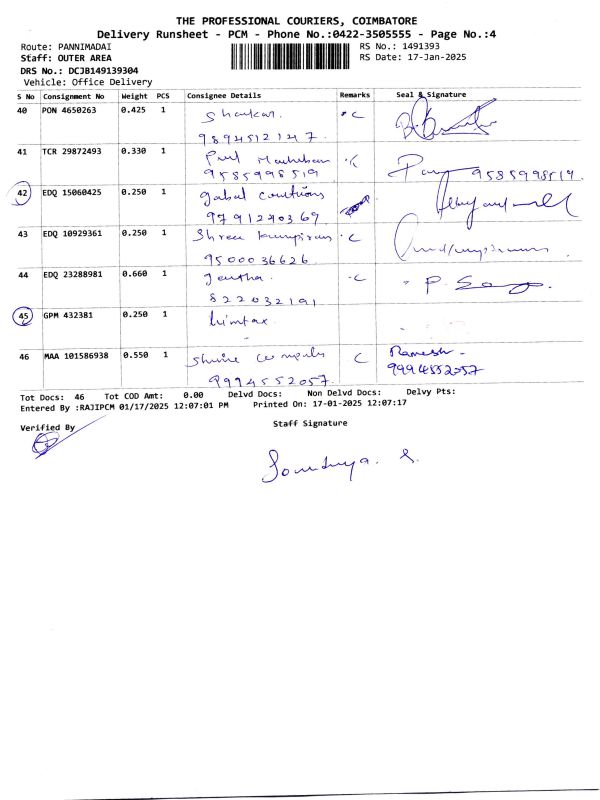 THE PROFESSIONAL COURIERS, COIMBATORE
Delivery Runsheet - PCM - Phone No.:0422-3505555 - Page No.:4
Route: PANNIMADAI
RS No.: 1491393
Staff: OUTER AREA
RS Date: 17-Jan-2025
DRS No.: DCJB149139304
Vehicle: Office Delivery
S No Consignment No Weight PCS Consignee Details Remarks Seal & Signature
40 PON 4650263 0.425 1 Shankar. C
9894512147.
41 TCR 29872493 0.330 1
9585998519 9585998519.
42 EDQ 15060425 0.250 1
9791290369
43 EDQ 10929361 0.250 1 Shree C
9500036626
44 EDQ 23288981 0.660 1 C P.
822032191
45 GPM 432381 0.250 1
46 MAA 101586938 0.550 1 Shine C Ramesh.
9994552057. 9994552057
Tot Docs: 46 Tot COD Amt: 0.00 Delvd Docs: Non Delvd Docs: Delvy Pts:
Entered By :RAJIPCM 01/17/2025 12:07:01 PM Printed On: 17-01-2025 12:07:17
Verified By Staff Signature